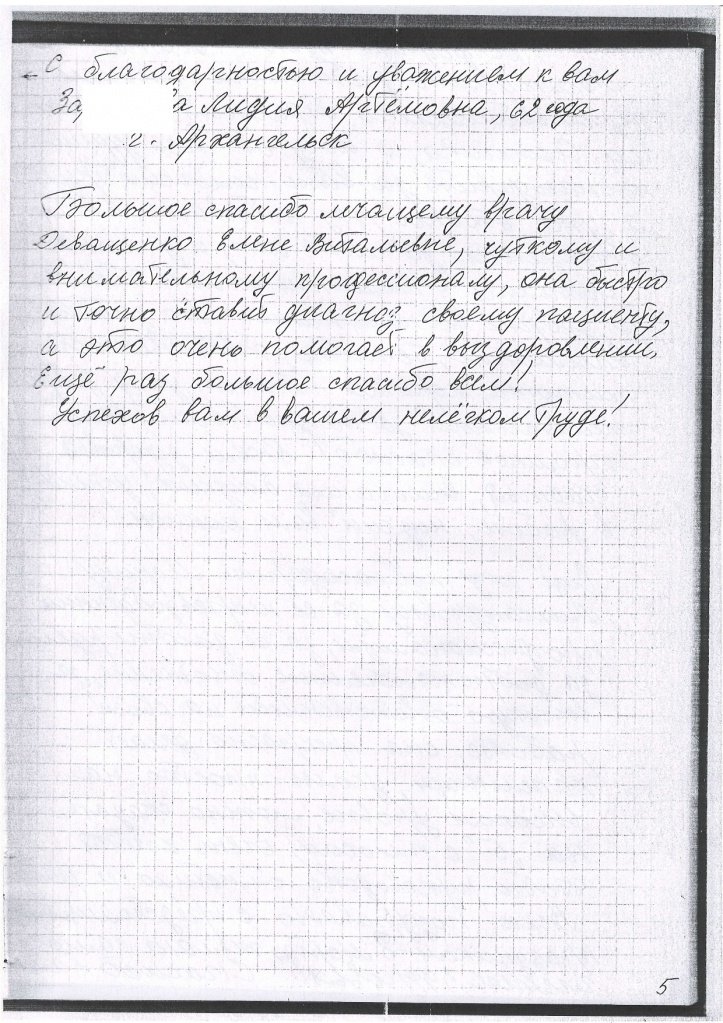 С благодарностью и уважением к вам
За а Лидия Артёмовна, 62 года
г. Архангельск
Большое спасибо лечащему врачу
Деващенко Елене Витальевне, чуткому и
внимательному профессионалу, она быстро
и точно ставит диагноз своему пациенту,
а это очень помогает в выздоровлении.
Ещё раз большое спасибо всем!
Успехов вам в вашем нелёгком труде!
5